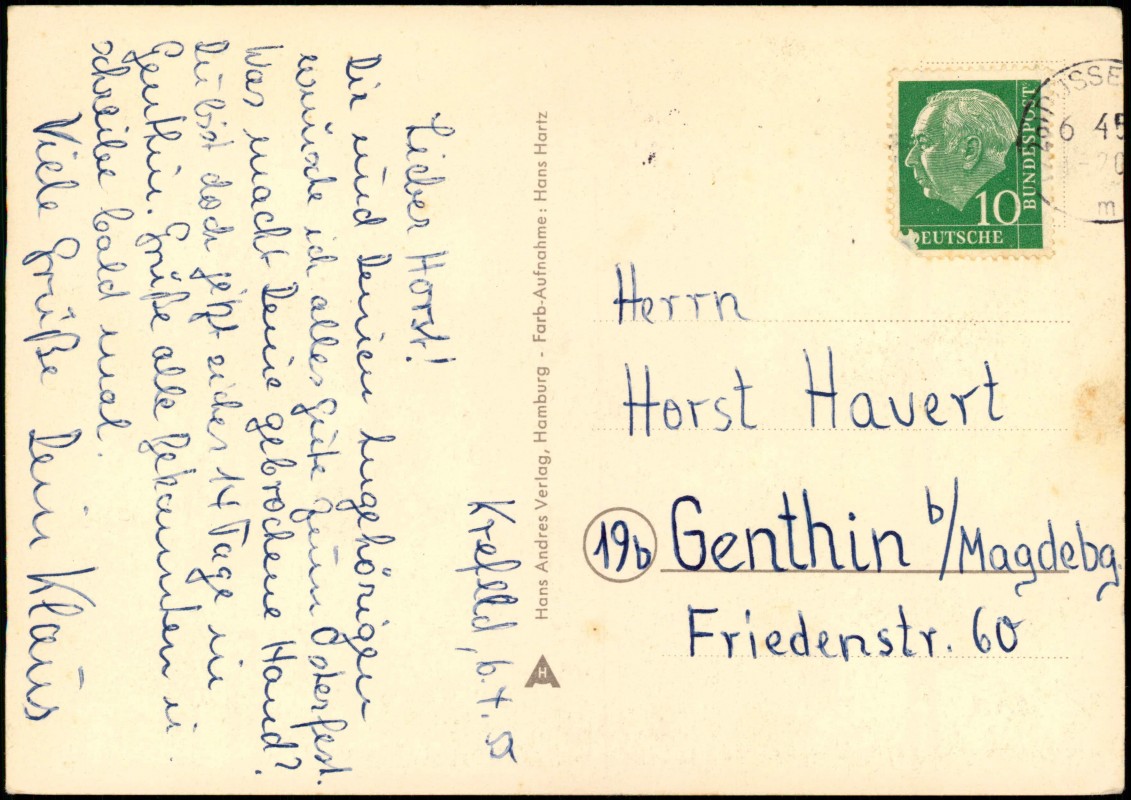 Krefeld, 6.4.
Lieber Horst!
Dir und Deinen Angehörigen
wünsche ich alles Gute zum Osterfest.
Was macht Deine gebrochene Hand?
Du bist doch jetzt sicher 14 Tage in
Genthin. Grüße alle Bekannten u.
schreibe bald mal.
Viele Grüße Dein Klaus
Hans Andres Verlag, Hamburg - Farb-Aufnahme: Hans Hartz
H
DEUTSCHE
BUNDESPOST
10
6 45
-20
m
Herrn
Horst Havert
19b Genthin b/Magdebg.
Friedenstr. 60